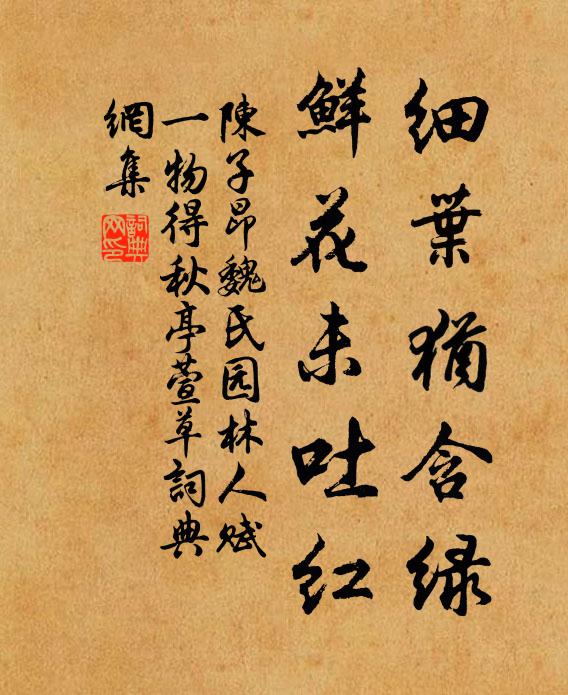 細葉猶含綠
鮮花未吐紅
陳子昂魏氏园林人赋
一物得秋亭萱草詞典
網集
詞典
网印